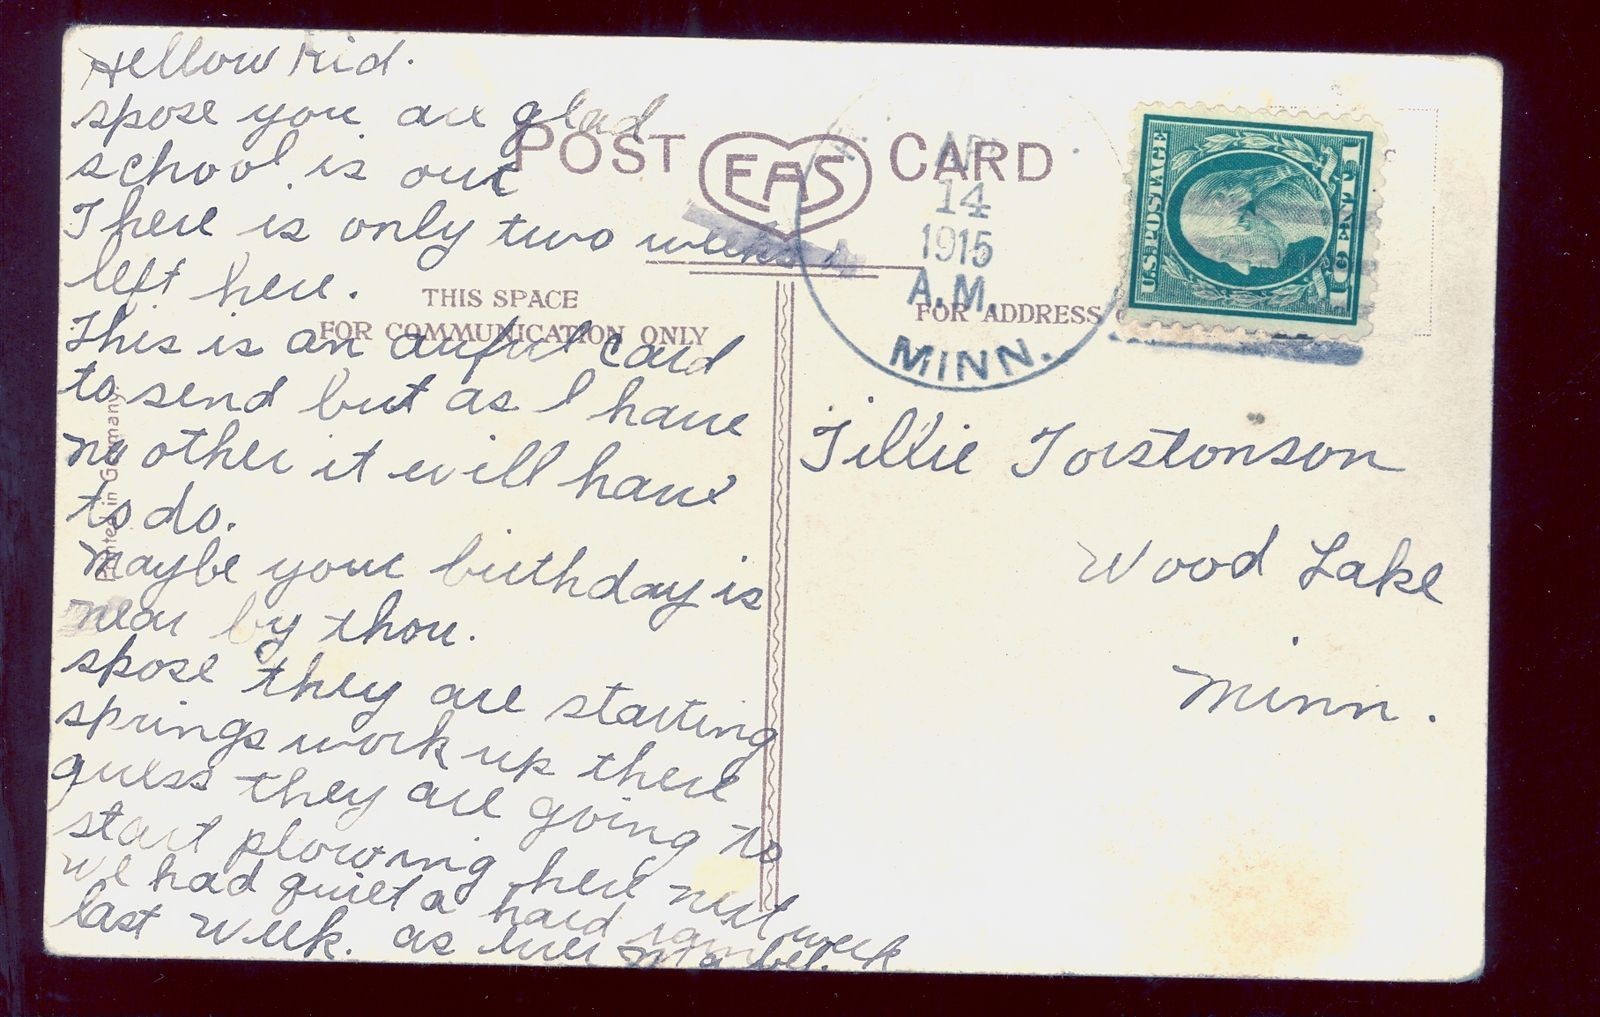 Hellow Kid.
spose you are glad
school is out
There is only two weeks
left here.
This is an auful card
to send but as I have
no other it will have
to do.
Maybe your birthday is
near by thou.
spose they are starting
springs work up there
guess they are going to
start plowing here next week
we had quiet a hard rain
last week. as ever Mabel.
POST CARD
EAS
THIS SPACE
FOR COMMUNICATION ONLY
FOR ADDRESS
Printed in Germany.
14
1915
A.M.
MINN.
U.S. POSTAGE
1 CENT 1
Tillie Torstonson
Wood Lake
Minn.